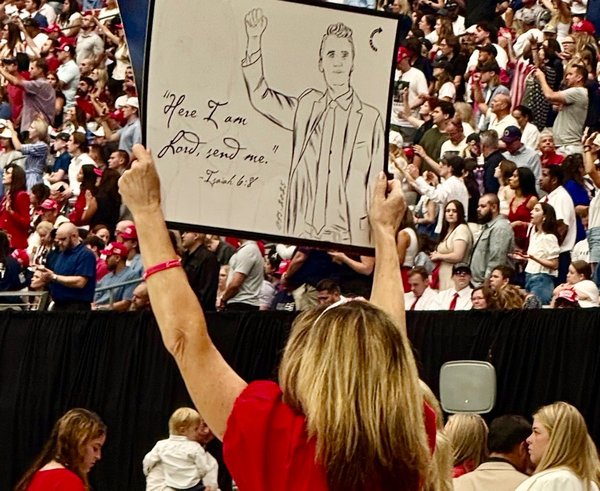 "Here I am
Lord, send me."
- Isaiah 6:8